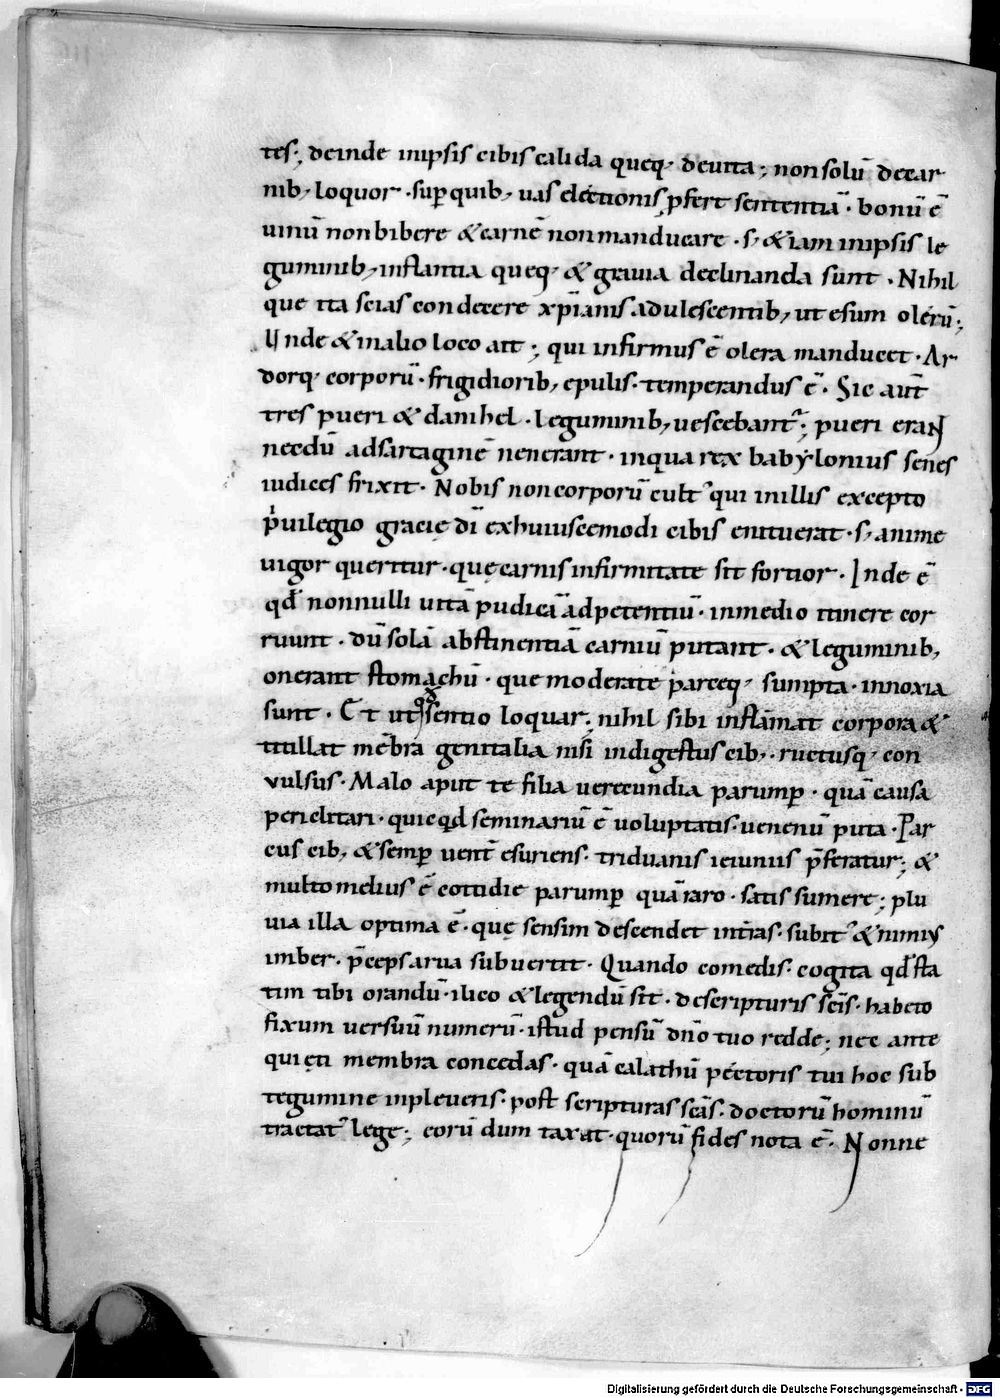 tes; deinde inipsis cibis calida queq; deuita; non solū decar
nib; loquor · sup̱ quib; uas electionis p̱fert sententiā · bonū ē
uinū non bibere & carnē non manducare · s; & iam inipsis le
guminib; inflantia queq; & grauia declinanda sunt · Nihil
que ita scias condecere xp̄ianis adulescentib; ut esum olerū;
Unde & inalio loco ait; qui infirmus ē olera manducet · Ar
dorq; corporū · frigidiorib; epulis · temperandus ē · Sic aut̄
tres pueri & danihel · leguminib; uescebant᷑; pueri erant
necdū adsartaginē uenerant · inqua rex babẏlonius senes
iudices frixit · Nobis non corporū cult᷑ qui inillis excepto
puilegio gracię dī exhuiuscemodi cibis enituerat · s; anime
uigor queritur · quę carnis infirmitate sit fortior · Inde ē
qđ nonnulli uitā pudicā adpetentiū · inmedio itinere cor
ruunt · dū solā abstinentiā carniū putant · & leguminib;
onerant stomachū · que moderate parceq; sumpta · innoxia
sunt · Et ut qđ sentio loquar; nihil sibi inflāmat corpora &
titillat mēbra genitalia nisi indigestus cib; · ructusq; con
vulsus · Malo aput te filia uerecundia parump̱ · quā causa
periclitari · quicqd seminariū ē uoluptatis · uenenū puta · Par
cus cib; & semp̱ uent̄ esuriens · triduanis ieiuniis p̄feratur; &
multo melius ē cottidie parump̱ quā raro · satis sumere; plu
uia illa optima ē · quę sensim descendet int̄ras · subit᷑ & nimis
imber · p̄ceps arua subuertit · Quando comedis · cogita qđ sta
tim tibi orandū · ilico & legendū sit · descripturis scīs · habeto
fixum versuū numerū · istud pensū dn̄o tuo redde; nec ante
quięti membra concedas · quā calathū pectoris tui hoc sub
tegumine inpleueris · post scripturas scās · doctorū hominū
tractat᷑ lege; eorū dum taxat · quorū fides nota ē · Nonne
Digitalisierung gefördert durch die Deutsche Forschungsgemeinschaft - DFG